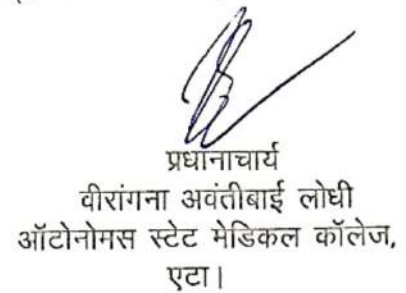 प्रधानाचार्य
वीरांगना अवंतीबाई लोधी
ऑटोनोमस स्टेट मेडिकल कॉलेज,
एटा।